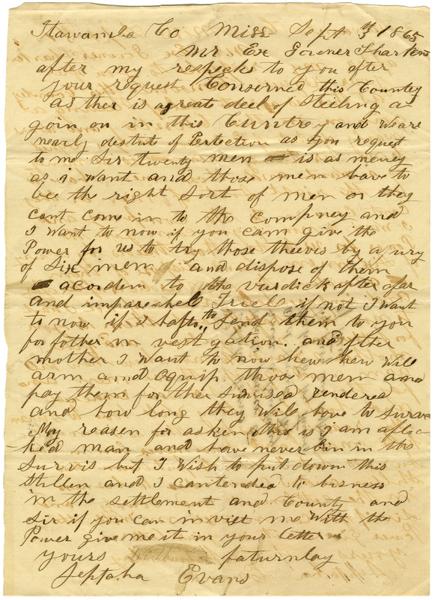 Itawamba Co Miss Sept 3 1865
Mr Ex Govener Sharkens
after my respecks to you after
your request Concerned this Country
as ther is a greate deel of Steeling a
goin on in this Cuntrey and we are
nearly destitute of Pertection as you request
to me Sir twenty men is as meney
as I want and those men have to
bee the right sort of men or they
cant come in to the Compney and
I want to now if you cam give the
Power for us to try those theeves by a jury
of Six men and dispose of them
acorden to the vurdick after a far
and imparshel Triel if not I want
to now if I hafto Send them to you
for fother in vestgation. and fther
mother I want to now hew will
arm and Equip those men and
pay them for ther Survises rendered
and how long they will have to Surve
My reason for asken this is I am aflic
ked man and have never bin in the
Survis but I Wish to put down this
Stillen and I cantended to bisness
in the settlement and County and
Sir if you can in vest me with the
Power give me it in your letter
yours faturnley
Septaha Evans